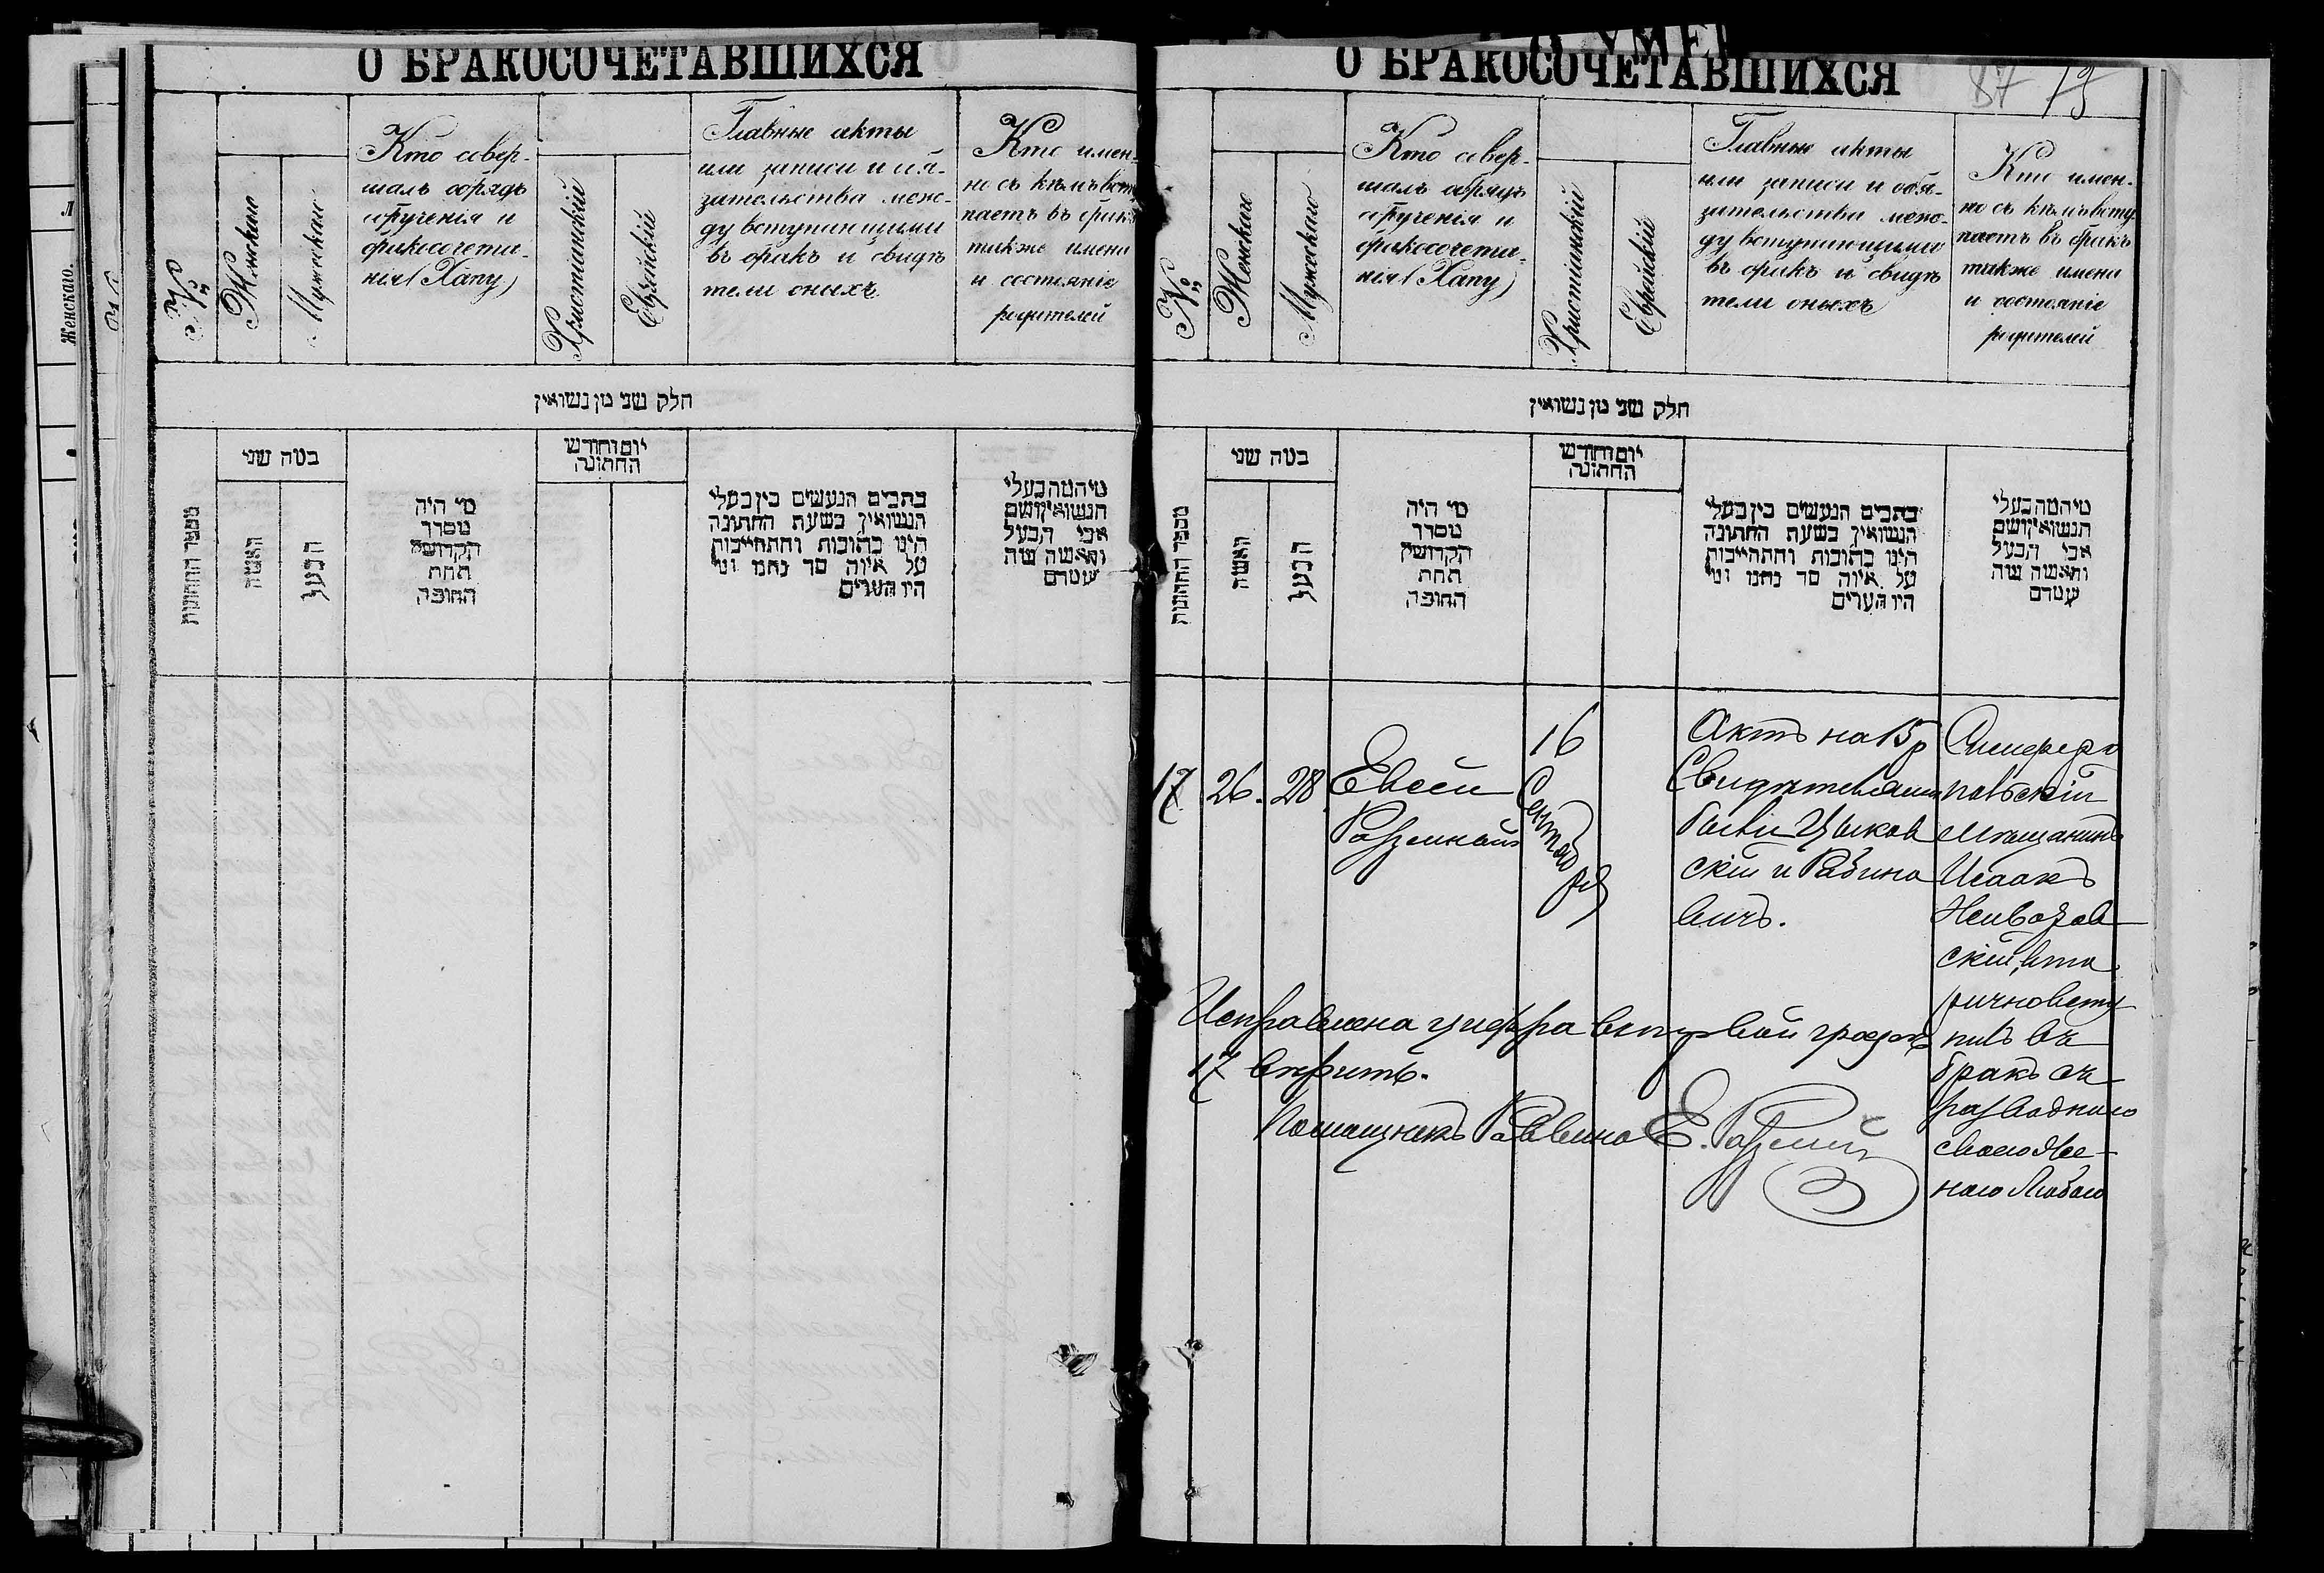 О БРАКОСОЧЕТАВШИХСЯ
№
Женскаго
Мужескаго
Кто совер-
шалъ обрядъ
обрученія и
бракосочета-
нія (Хапу)
Христіанскій
Еврейскій
Главные акты
или записи и обя-
зательства меж-
ду вступающими
въ бракъ и свидѣ
тели оныхъ
Кто имен-
но съ кѣмъ всту
паетъ въ бракъ
также имена
и состояніе
родителей
חלק שני מן נשואין
מספר החתונות
כמה שני
האשה
הבעל
מי היה
מסדר
הקדושין
תחת
החופה
יום וחודש
החתונה
כתבים הנעשים בין בעלי
הנשואין בשעת החתונה
היגו כתובות והתחייבות
על איזה סך נתנו ומי
היו העדים
מי המה בעלי
הנשואין ושם
אבי הבעל
והאשה ומה
שמדם
О БРАКОСОЧЕТАВШИХСЯ
87 19
№
Женскаго
Мужескаго
Кто совер-
шалъ обрядъ
обрученія и
бракосочета-
нія (Хапу)
Христіанскій
Еврейскій
Главные акты
или записи и обя-
зательства меж-
ду вступающими
въ бракъ и свидѣ
тели оныхъ
Кто имен-
но съ кѣмъ всту
паетъ въ бракъ
также имена
и состояніе
родителей
חלק שני מן נשואין
מספר החתונות
כמה שני
האשה
הבעל
מי היה
מסדר
הקדושין
תחת
החופה
יום וחודש
החתונה
כתבים הנעשים בין בעלי
הנשואין בשעת החתונה
היגו כתובות והתחייבות
על איזה סך נתנו ומי
היו העדים
מי המה בעלי
הנשואין ושם
אבי הבעל
והאשה ומה
שמדם
17
26.
28
Евсей
Разумный
16
Сентяб
ря
Актъ на 15 р
Свидѣтелями
были Цыков
скій и Рабино
вичъ.
Симферо
польскій
мѣщанинъ
Исаакъ
скій, вто
рично всту
пилъ въ
бракъ съ
разводною
своею Же-
ною Любою
Исправлена цифра въ первой графѣ
17 вѣрить.
Помощникъ Раввина Е. Разумный